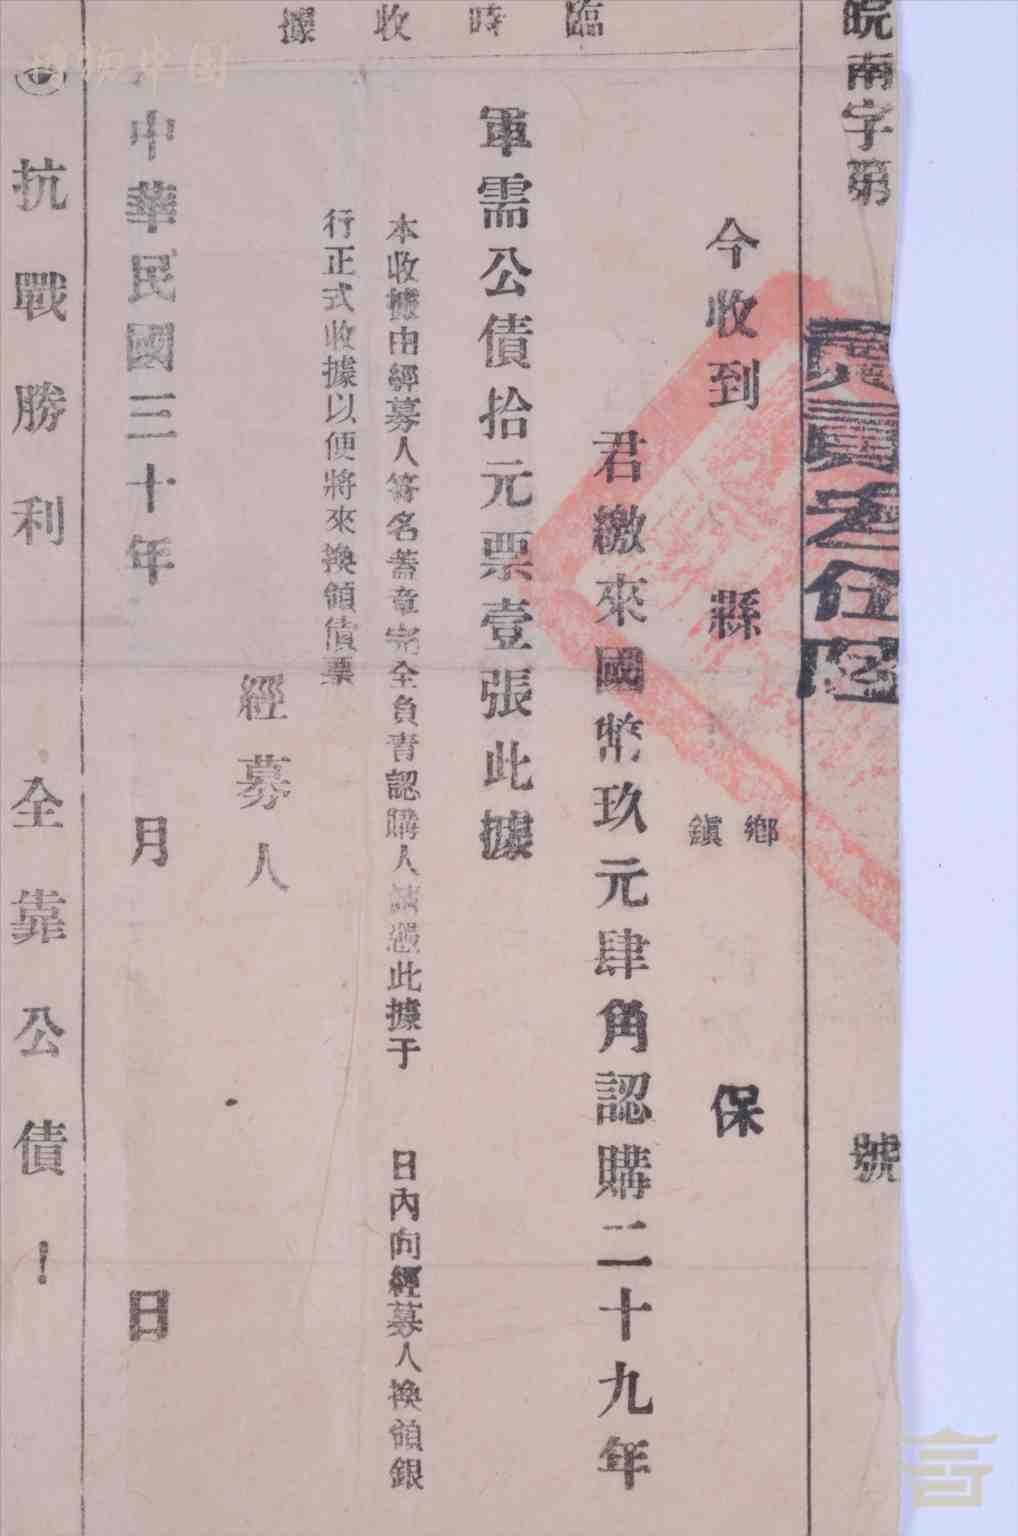 臨時收據
皖南字第 號
今收到 縣 鄉鎮 保
君繳來國幣玖元肆角認購二十九年
軍需公債拾元票壹張此據
本收據由經募人簽名蓋章完全負責認購人請憑此據于 日內向經募人換領銀
行正式收據以便將來換領債票
經募人
中華民國三十年 月 日
抗戰勝利 全靠公債！